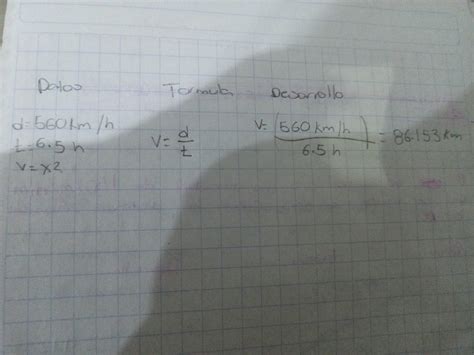 Datos Formula Desarrollo
d=560km/h
t=6.5h
v=x2
V=d/t
V=(560km/h)/6.5h=86.153km